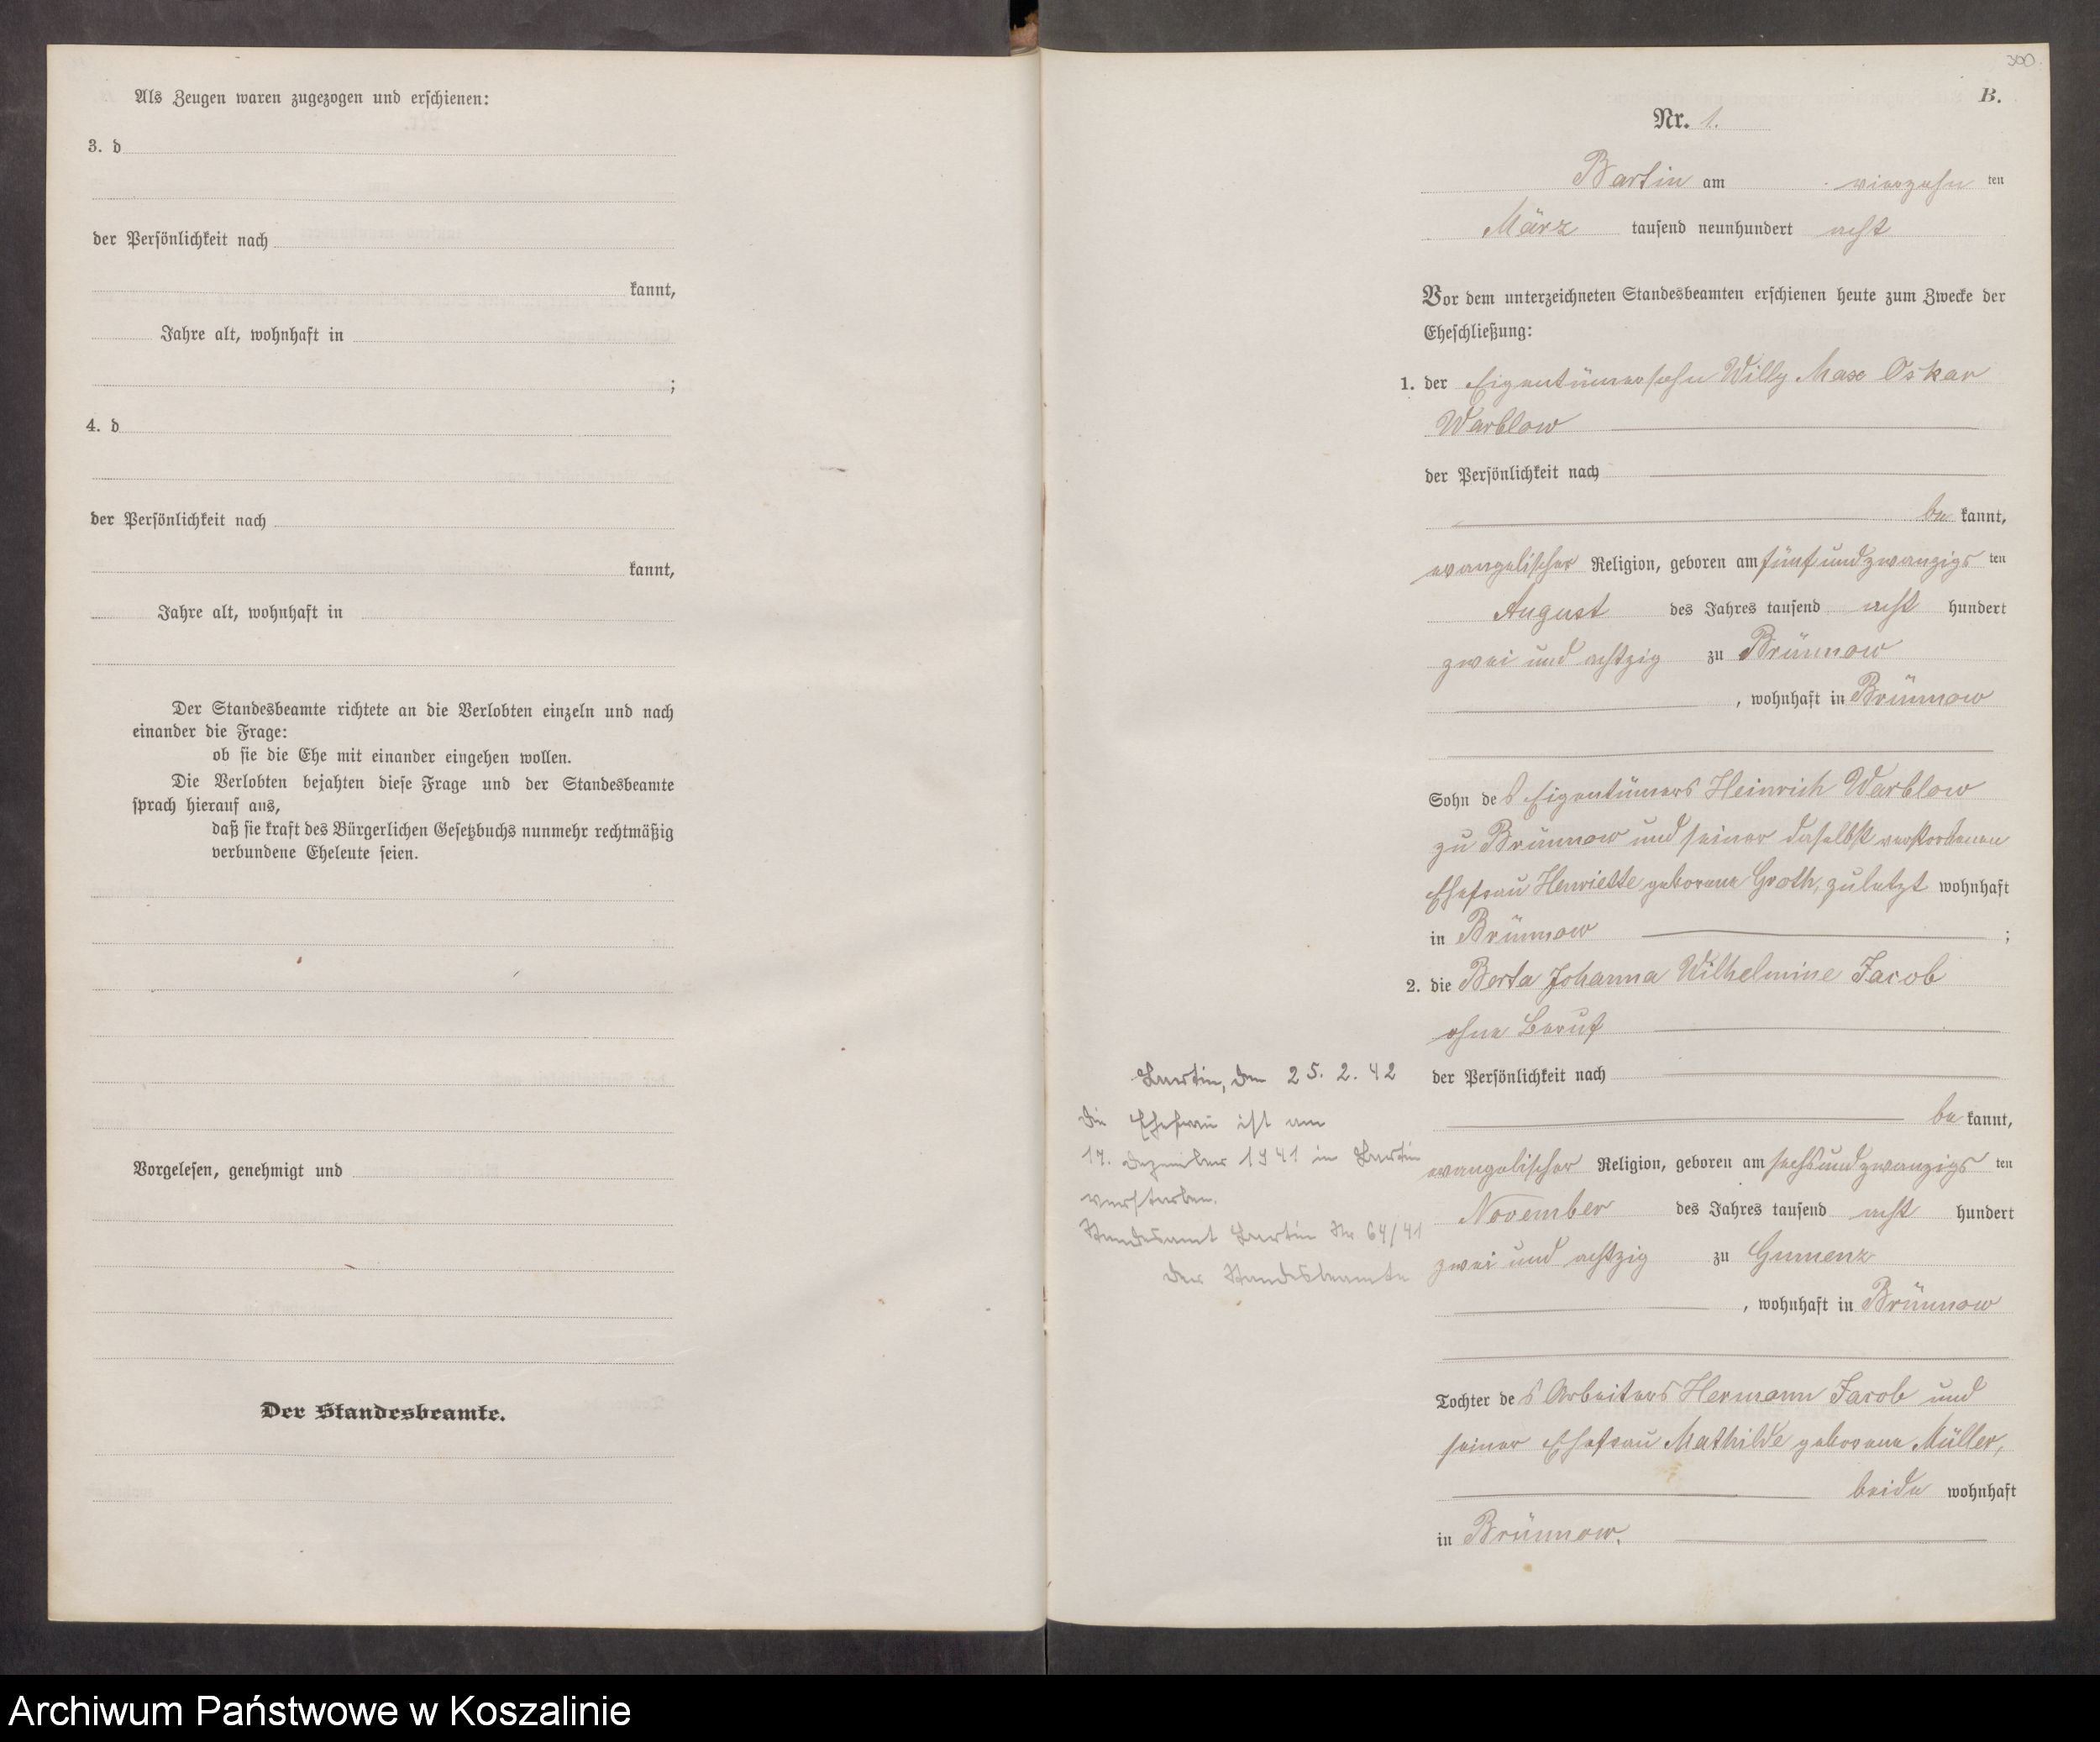 Als Zeugen waren zugezogen und erschienen:
3. d
der Persönlichkeit nach
kannt,
Jahre alt, wohnhaft in
;
4. d
der Persönlichkeit nach
kannt,
Jahre alt, wohnhaft in
Der Standesbeamte richtete an die Verlobten einzeln und nach
einander die Frage:
ob sie die Ehe mit einander eingehen wollen.
Die Verlobten bejahten diese Frage und der Standesbeamte
sprach hierauf aus,
daß sie kraft des Bürgerlichen Gesetzbuchs nunmehr rechtmäßig
verbundene Eheleute seien.
Vorgelesen, genehmigt und
Der Standesbeamte.
300.
B.
Nr. 1.
Bartin am vierzehn ten
März tausend neunhundert acht
Vor dem unterzeichneten Standesbeamten erschienen heute zum Zwecke der
Eheschließung:
1. der Eigentümersohn Willy Max Oskar
Warblow
der Persönlichkeit nach
be kannt,
evangelischer Religion, geboren am fünfundzwanzigs ten
August des Jahres tausend acht hundert
zwei und achtzig zu Brünnow
, wohnhaft in Brünnow
Sohn des Eigentümers Heinrich Warblow
zu Brünnow und seiner daselbst verstorbenen
Ehefrau Henriette geborene Groth, zuletzt wohnhaft
in Brünnow ;
2. die Berta Johanna Wilhelmine Jacob
ohne Beruf
der Persönlichkeit nach
be kannt,
evangelischer Religion, geboren am sechsundzwanzigs ten
November des Jahres tausend acht hundert
zwei und achtzig zu Gumenz
, wohnhaft in Brünnow
Tochter des Arbeiters Hermann Jacob und
seiner Ehefrau Mathilde geborene Müller,
beide wohnhaft
in Brünnow.
Bartin, den 25. 2. 42
Die Ehefrau ist am
17. Dezember 1941 in Bartin
verstorben.
Standesamt Bartin Nr 64/41
Der Standesbeamte
Archiwum Państwowe w Koszalinie